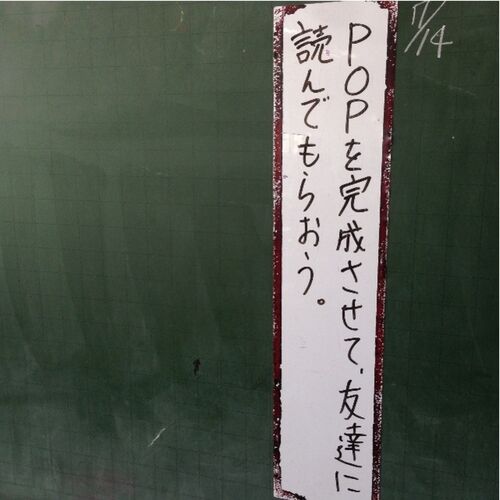 POPを完成させて、友達に
読んでもらおう。